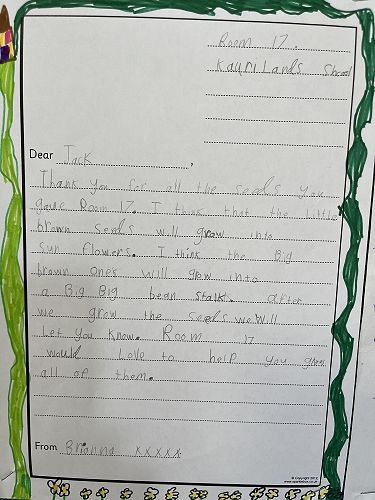 Room 17.
Kauri Lands School
Dear Jack,
Thank you for all the seeds you
gave Room 17. I think that the little
brown seeds will grow into
sun flowers. I think the Big
brown ones will grow into
a Big Big bean stalk. after
we grow the seeds we will
Let you know. Room 17
would Love to help you grow
all of them.
From Brianna xxxxx
© Copyright 2012
www.sparklebox.co.uk